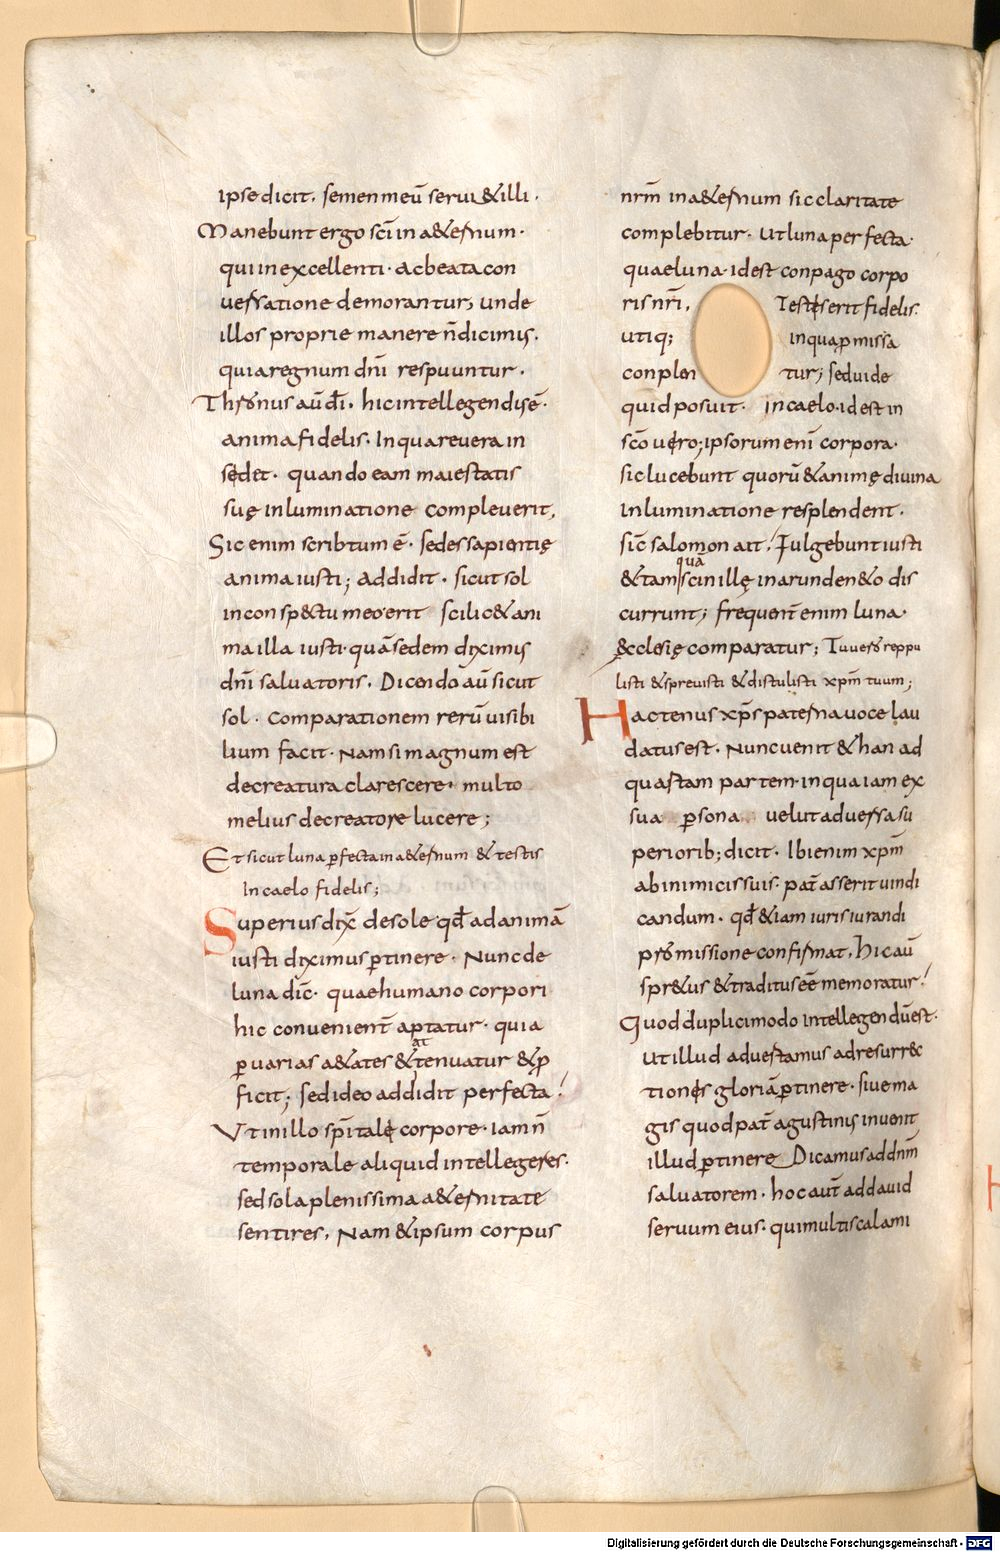 ipse dicit. semen meū serui&illi.
Manebunt ergo sc̄i in a&ernum.
qui in excellenti. ac beata con
uersatione demorantur; unde
illos proprie manere n̄ dicimus.
quia regnum dn̄i respuuntur.
Thronus aū dī. hic intellegendus ē.
anima fidelis. In qua reuera in
sędet. quando eam maiestatis
suę inluminatione compleuerit,
Sic enim scribtum ē. sedes sapientię
anima iusti; addidit. sicut sol
in consp&tu meo erit scilic& ani
ma illa iusti. quā sedem diximis
dn̄i saluatoris. Dicendo aū sicut
sol. comparationem rerū uisibi
lium facit. Nam si magnum est
de creatura clarescere. multo
melius de creatore lucere;
Et sicut luna ꝑfecta in a&ernum & testis
in caelo fidelis;
Superius dix̄ de sole qd̄ ad animā
iusti diximus ꝑtinere. Nunc de
luna dic̄. quae humano corpori
hic conuenient̄ aptatur. quia
ꝑ uarias a&ates &tenuatur & ꝑ
at
ficit; sed ideo addidit perfecta!
Ut in illo sp̄italę corpore. iam n̄
temporale aliquid intellegeres.
sed sola plenissima a&ernitate
sentires, Nam & ipsum corpus
nr̄m in a&ernum sic claritate
complebitur. ut luna perfecta.
quae luna. id est conpago corpo
ris nr̄i, Testęs erit fidelis.
utiq; in qua ꝓmissa
conplentur; sed uide
quid posuit. In caelo. id est in
sc̄o uęro; ipsorum enī corpora.
sic lucebunt quorū & animę diuina
inluminatione resplendent.
sic̄ salomon ait. Fulgebunt iusti
quā
& tam scintillę in arundin&o dis
currunt; frequent̄ enim luna.
ęcclesię comparatur; Tu uero reppu
listi & spreuisti & distulisti xp̄m tuum;
Hactenus xp̄s paterna uoce lau
datus est. Nunc uenit & han ad
quastam partem. in qua iam ex
sua ꝑsona uelut aduersa su
periorib; dicit. Ibi enim xp̄m
ab inimicis suis. pat̄ asserit uindi
candum. qd̄ & iam iuris iurandi
promissione confirmat. hic aū
spr&us & traditus eē memoratur!
Quod duplici modo intellegendū est.
ut illud aduestamus ad resurrec
tionęs gloriā ꝑtinere. siue ma
gis quod pat̄ agustinis inuenit
illud ꝑtinere Dicamus ad dnm̄
saluatorem. hoc aut̄ ad dauid
seruum eius. qui multis calami